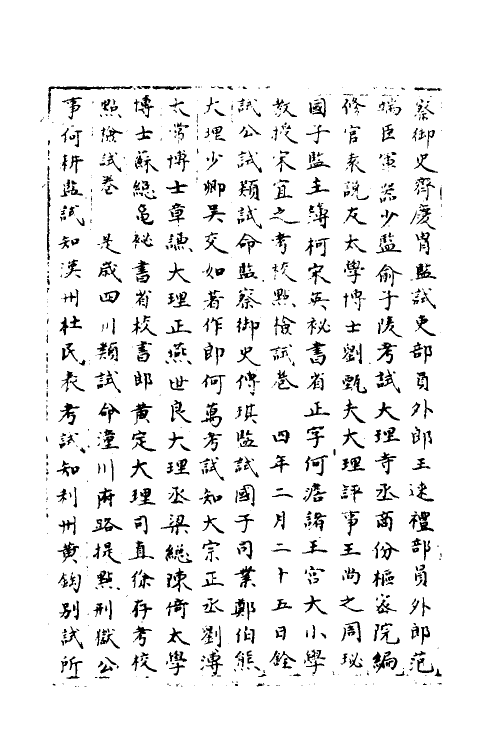 察御史齊慶胄監試吏部員外郎王逨禮部員外郎范
端臣軍器少監俞子陵考試大理寺丞商份樞宻院編
修官袁說友太學博士劉甄夫大理評事王尚之周珌
國子監主簿柯宋英袐書省正字何澹諸王宮大小學
教授宋宜之考校點檢試卷　四年二月二十五日銓
試公試類試命監察御史傅淇監試國子司業鄭伯熊
大理少卿吳交如著作郎何萬考試知大宗正丞劉溥
太常博士章謙大理正燕世良大理丞梁總陳倚太學
博士蘇總龜袐書省校書郎黄定大理司直徐存考校
點檢試卷　是歲四川類試命潼川府路提點刑獄公
事何耕監試知漢州杜民表考試知利州黄鈞別試所